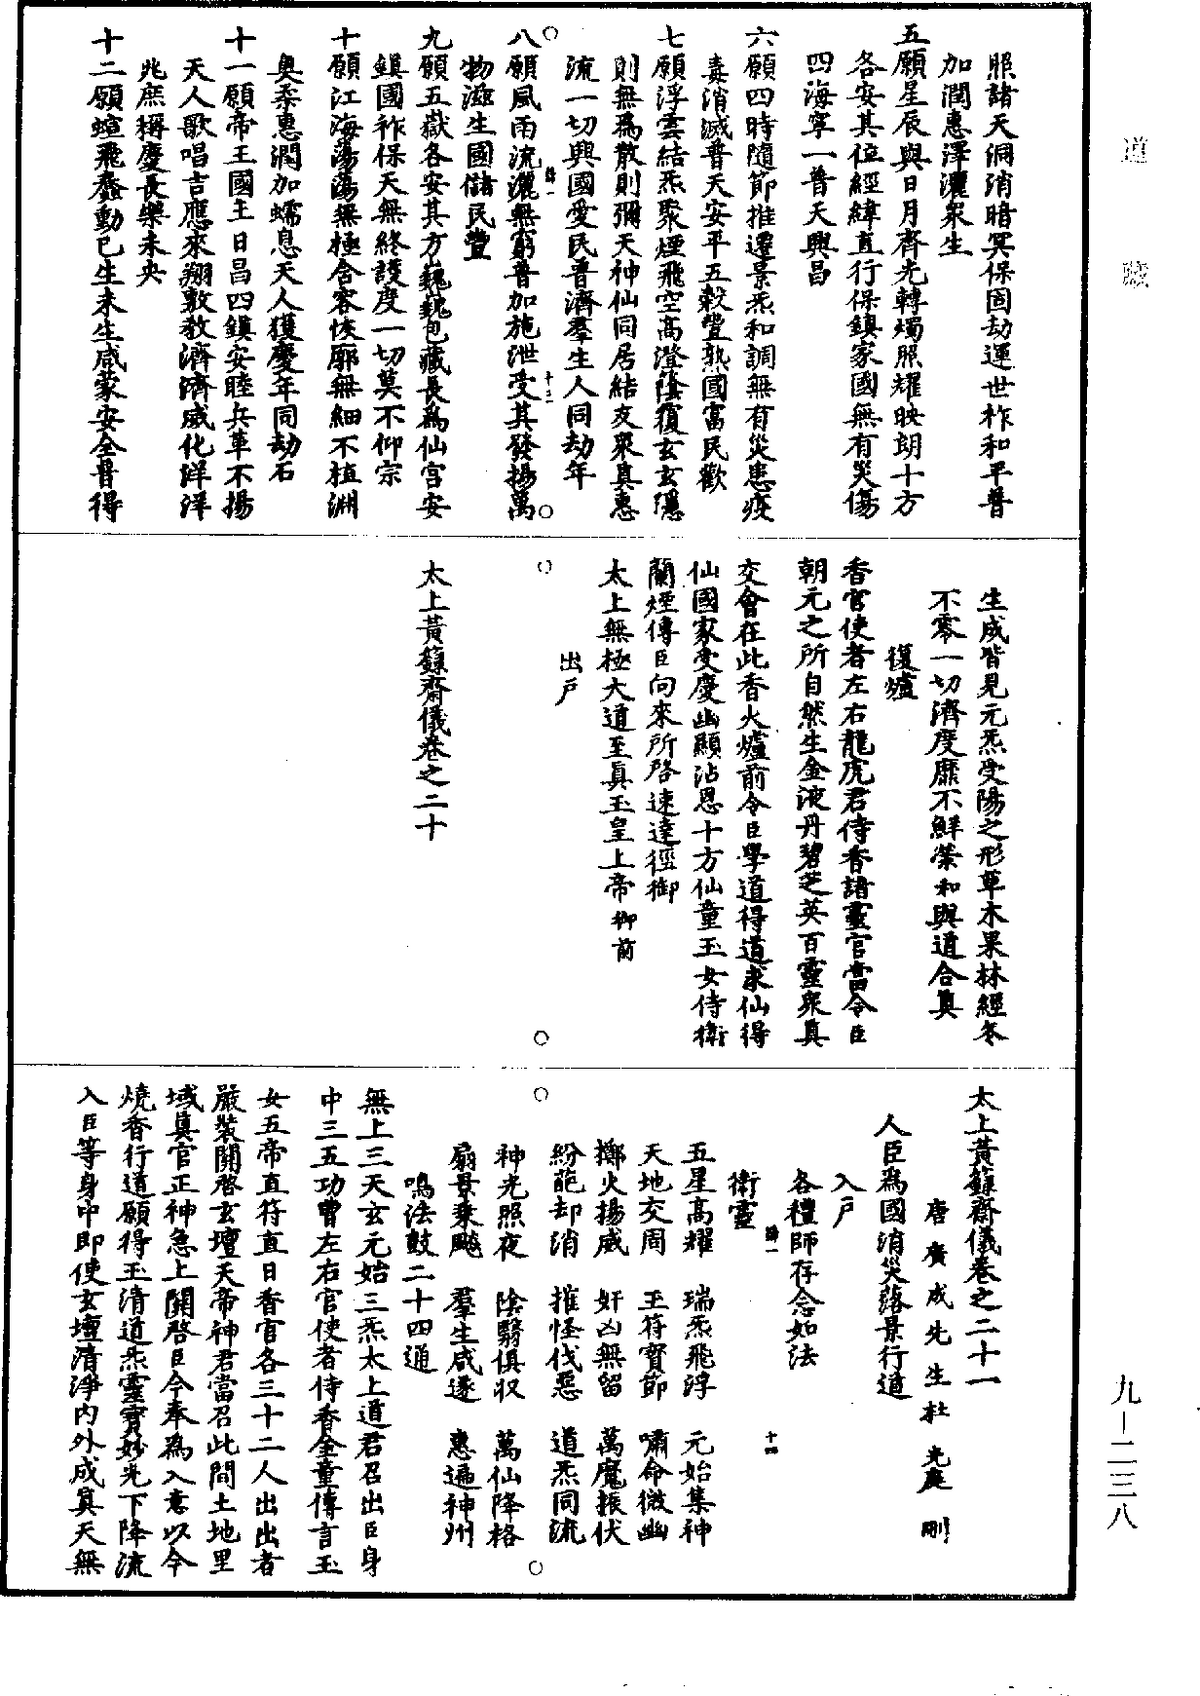 道藏
照諸天洞消暗冥保固劫運世祚和平普
加潤惠澤灑衆生
五願星辰與日月齊光轉燭照耀映朗十方
各安其位經緯直行保鎮家國無有災傷
四海寧一普天興昌
六願四時隨節推遷景炁和調無有災患疫
毒消滅普天安平五穀豐熟國富民歡
七願浮雲結炁聚煙飛空高澄陰覆玄玄隱
則無爲散則彌天神仙同居結友衆真惠
流一切興國愛民普濟羣生人同劫年
八願風雨流灑無窮普加施泄受其發揚萬
物滋生國儲民豐
九願五嶽各安其方巍巍包藏長爲仙宮安
鎮國祚保天無終護度一切莫不仰宗
十願江海蕩蕩無極含容恢廓無細不植淵
奧黍惠潤加蠕息天人獲慶年同劫石
十一願帝王國主日昌四鎮安睦兵革不揚
天人歌唱吉應來翔敷教濟濟威化洋洋
兆庶稱慶長樂未央
十二願蝖飛蠢動已生未生咸蒙安全普得
生成皆見元炁受陽之形草木果林經冬
不零一切濟度靡不鮮榮和與道合真
復爐
香官使者左右龍虎君侍香諸靈官當令臣
朝元之所自然生金液丹碧芝英百靈衆真
交會在此香火爐前令臣學道得道求仙得
仙國家受慶幽顯沾恩十方仙童玉女侍衛
蘭煙傳臣向來所啓速達徑御
太上無極大道至真玉皇上帝御前
出戶
太上黃籙齋儀卷之二十
太上黃籙齋儀卷之二十一
唐廣成先生杜光庭刪
人臣爲國消災落景行道
入戶
各禮師存念如法
衛靈
五星高耀 瑞炁飛浮 元始集神
天地交周 玉符寶節 嘯命微幽
擲火揚威 奸凶無留 萬魔振伏
紛葩却消 摧怪伐惡 道炁同流
神光照夜 陰翳俱収 萬仙降格
扇景乘飈 羣生咸遂 惠遍神州
鳴法鼓二十四通
無上三天玄元始三炁太上道君召出臣身
中三五功曹左右官使者侍香金童傳言玉
女五帝直符直日香官各三十二人出出者
嚴裝關啓玄壇天帝神君當召此間土地里
域真官正神急上關啓臣今奉爲入意以今
燒香行道願得玉清道炁靈寶妙光下降流
入臣等身中即使玄壇清淨內外成真天無
九—二三八